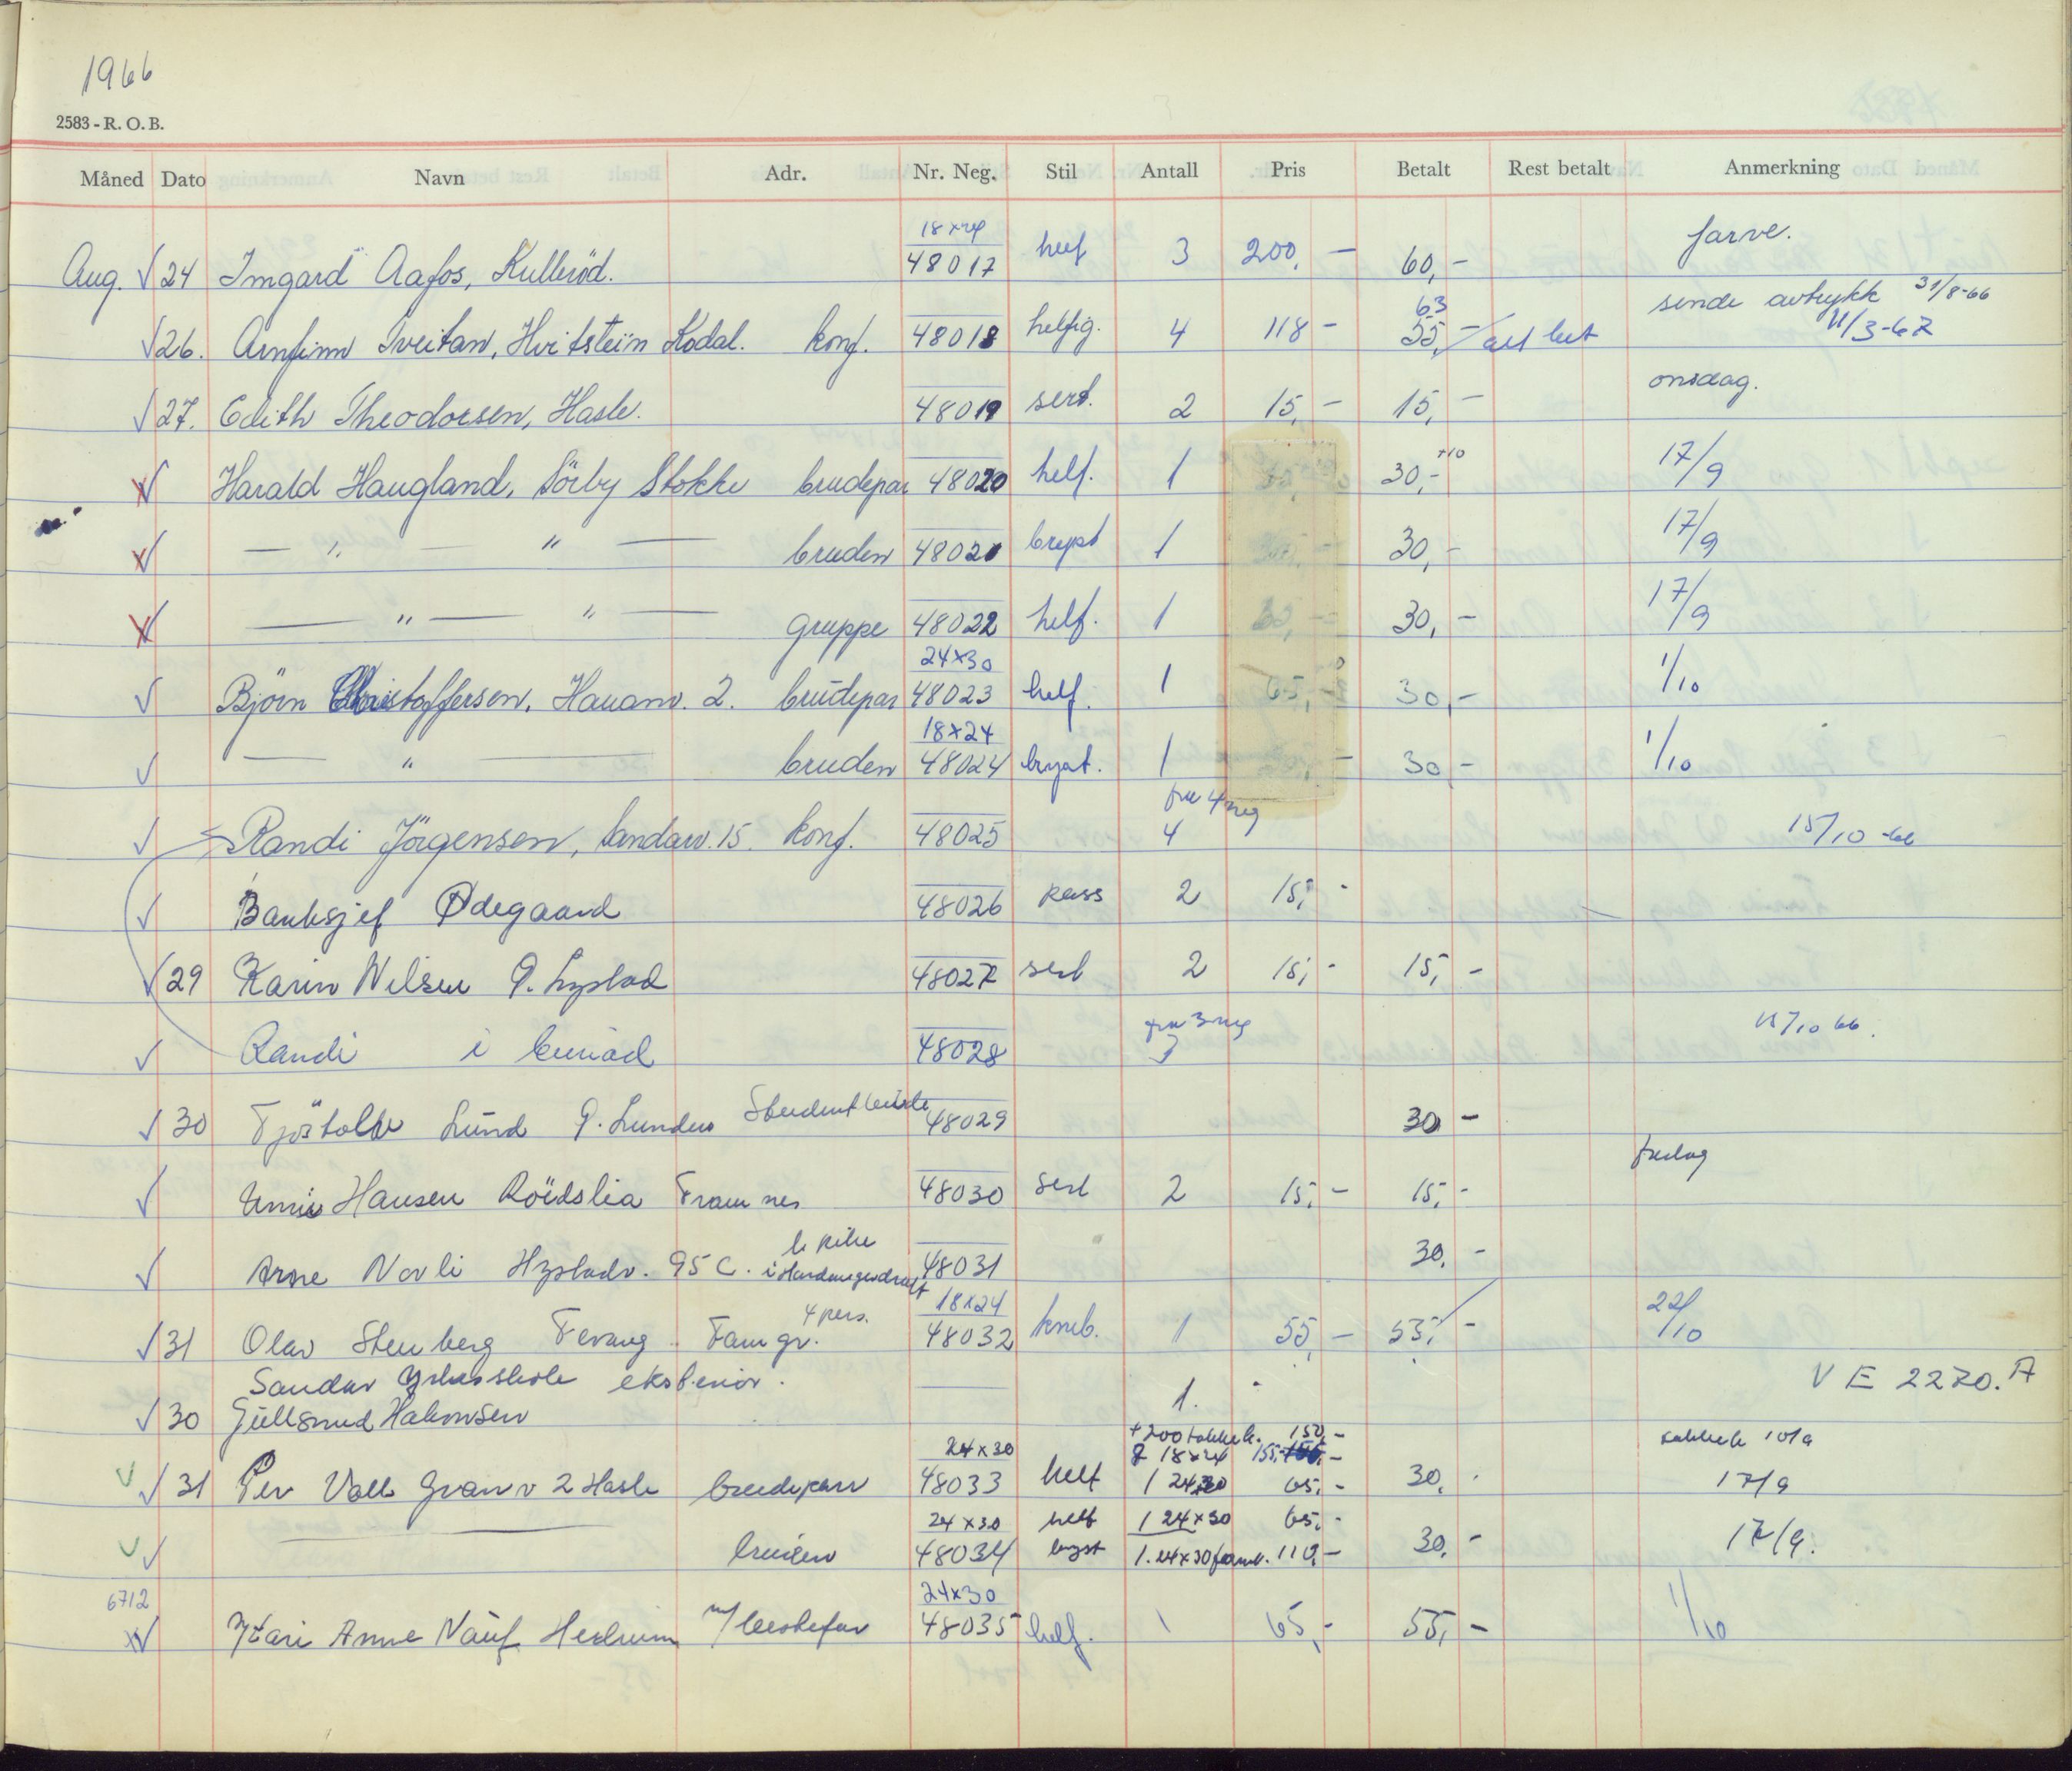 1966
2583 - R. O. B.
Måned Dato Navn Adr. Nr. Neg. Stil Antall Pris Betalt Rest betalt Anmerkning
18x24 farve.
Aug. √ 24 Imgard Aafos, Kulleröd. 48017 helf 3 200,- 60,-
63 sende avtrykk 31/8-66
√ 26. Arnfinn Tveitan, Hvitstein Kodal. konf. 48018 helfig. 4 118 - 55,- alt bet 11/3-67
onsdag.
√ 27. Edith Theodorsen, Hasle. 48019 sert. 2 15,- 15,-
X√ Harald Haugland, Sörby Stokke brudepar 48020 helf. 1 30,- +10 17/9
X√ — " — " — bruden 48021 bryst 1 30,- 17/9
X√ — " — " — gruppe 48022 helf. 1 30,- 17/9
24x30
√ Björn Christoffersen, Hauanv. 2. brudepar 48023 helf. 1 65,- 30,- 1/10
18x24
√ — " — bruden 48024 bryst. 1 30,- 1/10
fra 4 neg
√ Randi Jörgensen, Landav. 15. konf. 48025 4 15/10 -66
√ Banksjef Ødegaard 48026 pass 2 15,-
√ 29 Karin Nilsen 48027 sert 2 15,- 15,-
fra 3 neg
√ Randi i bunad 48028 3 15/10 66.
√ 30 Lund 48029 30 -
fredag
√ Hansen Rödslia Framnes 48030 sert 2 15,- 15,-
√ Arne Norli Hystadv. 95 C. i Hardangerdrakt 48031 30,-
4 pers. 18x24
√ 31 Olav Stenberg Tevang Fam gr. 48032 kneb. 1 55,- 55,- 22/10
Sandar Yrkesskole eksteriör. 1. VE 2270.A
√ 30 Gullsmed Hakonsen
+ 200 takkek. 150,- takkek 10/9
24x30 18x24 155,-
V √ 31 Per Vall Granv 2 Hasle brudepar 48033 helf 1 24x30 65,- 30, 17/9
24x30 helf 1 24x30 65,-
V √ — bruden 48034 bryst 1. 24x30 110,- 30,- 17/9.
6712 24x30
X√ Anne 48035 helf. 1 65,- 55,- 1/10